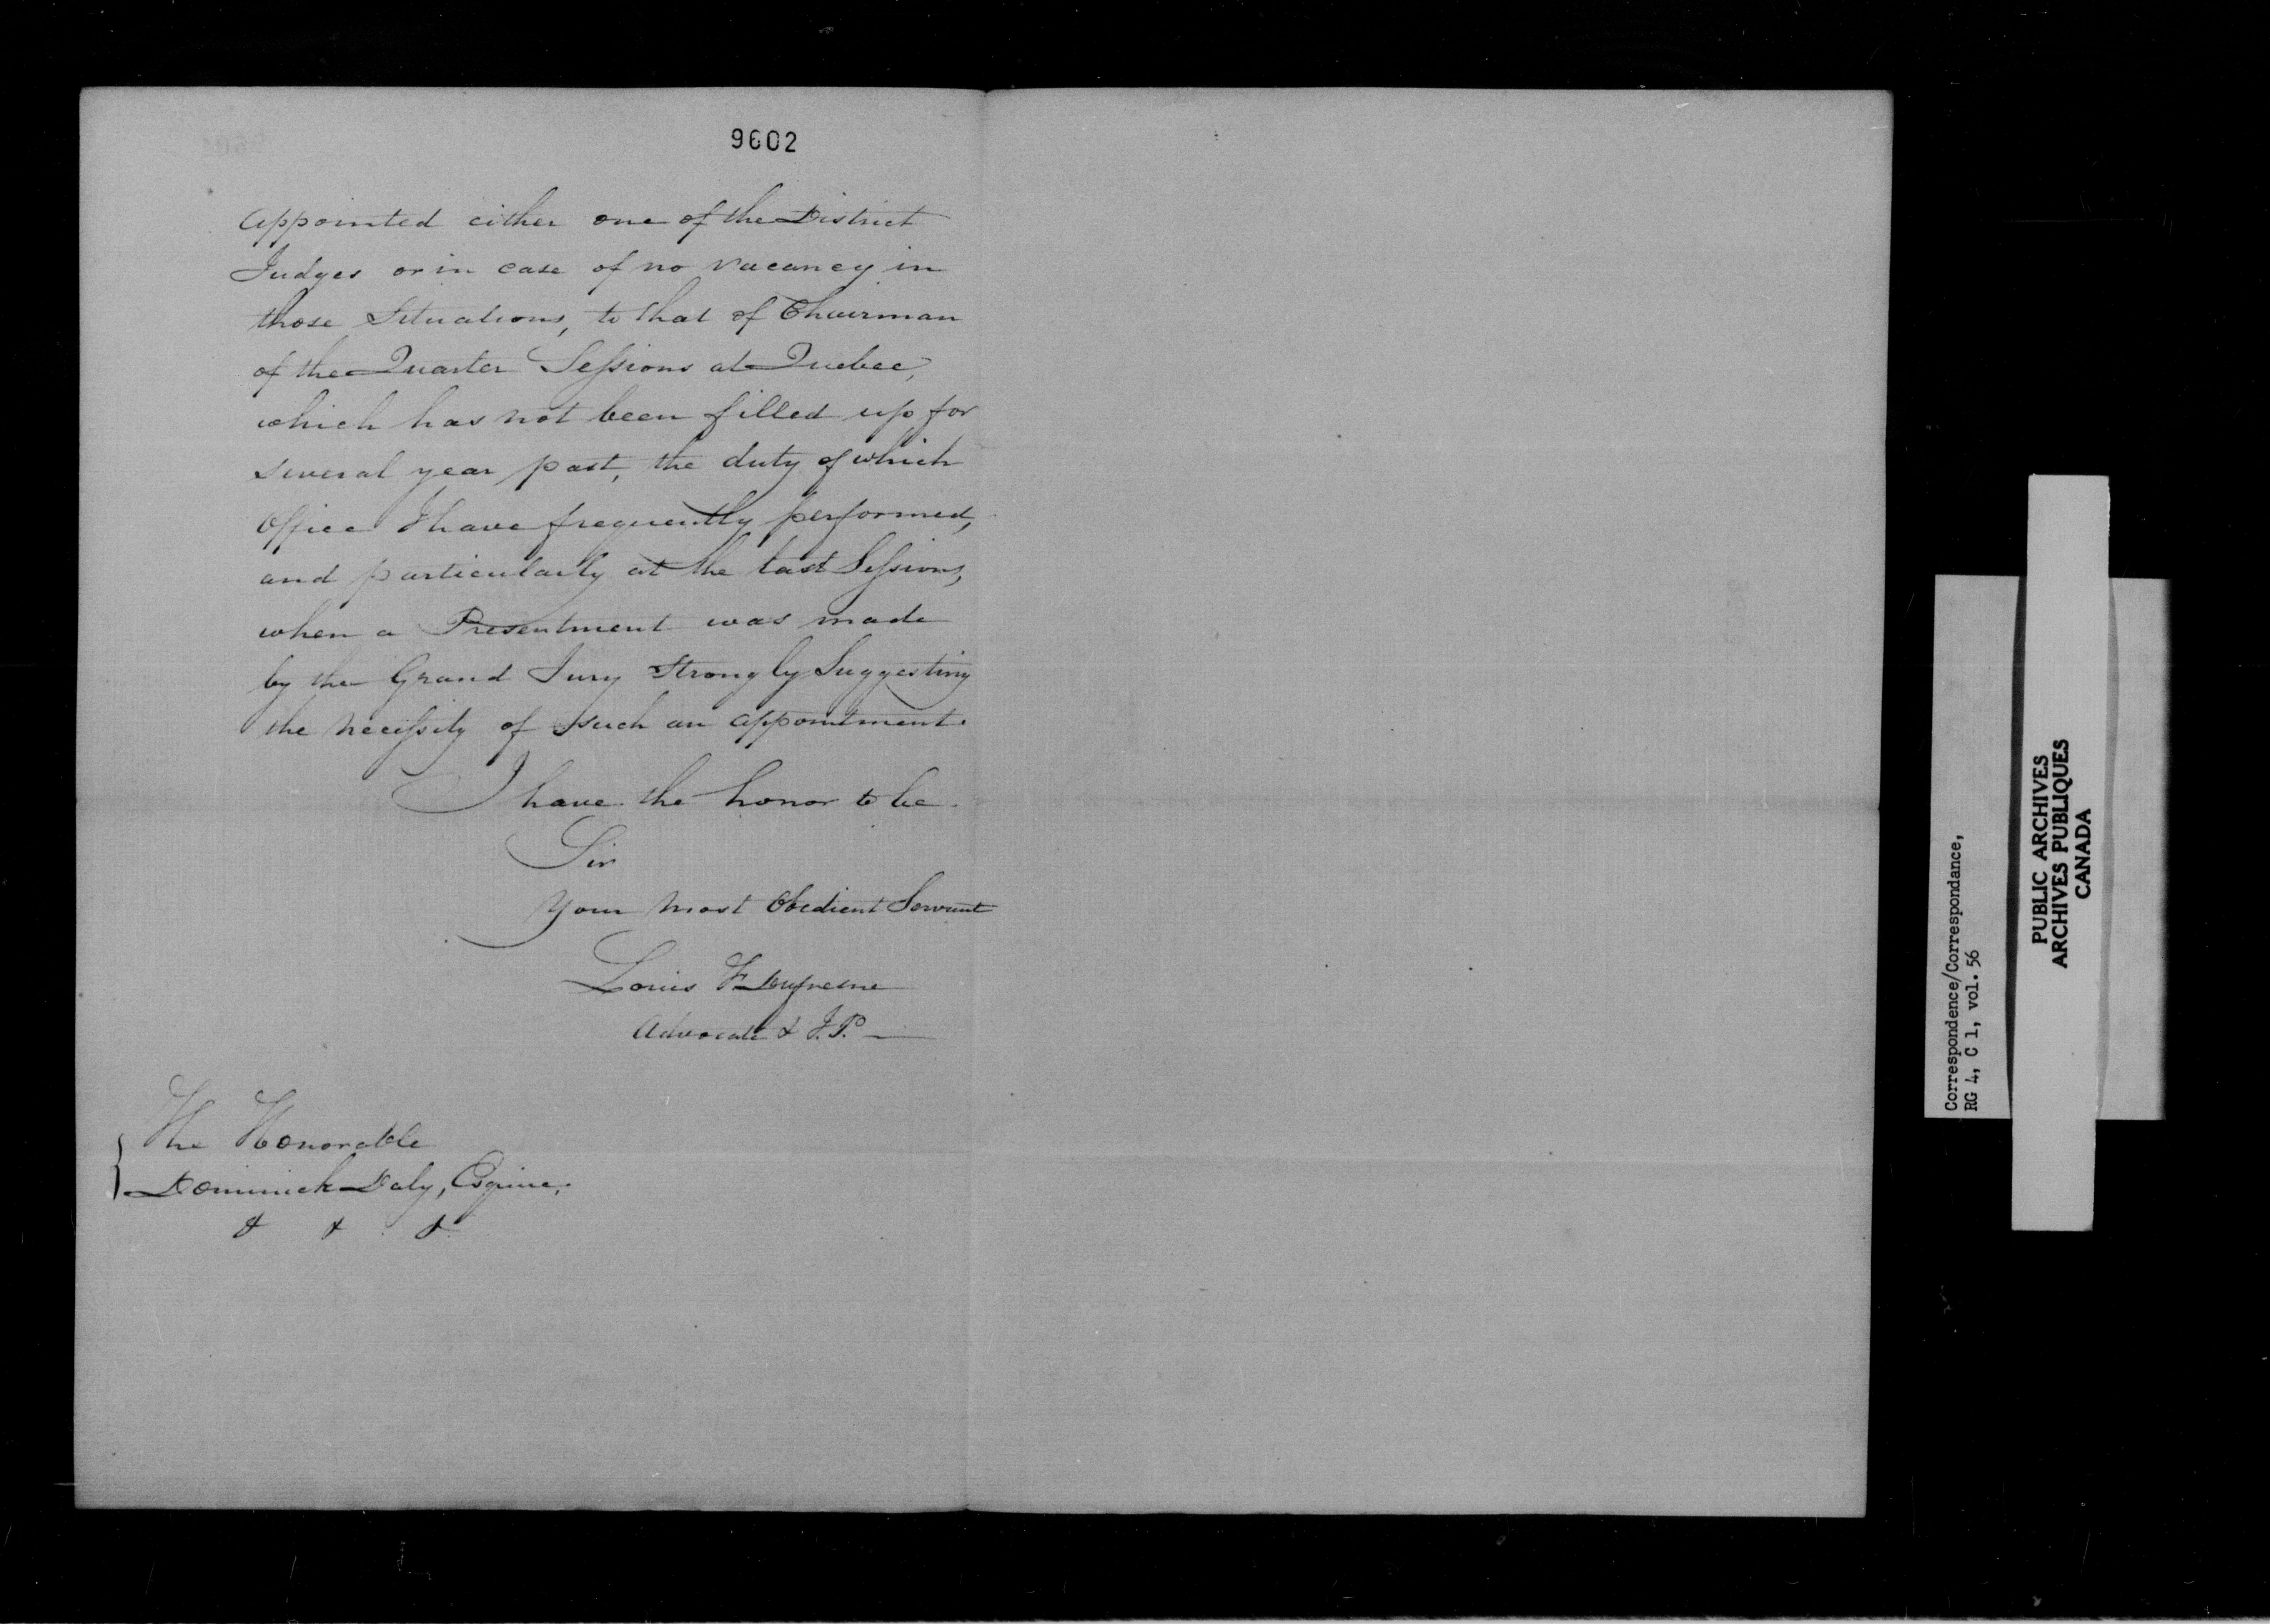 9602
appointed either one of the District
Judges or in case of no vacancy in
those Situations, to that of Chairman
of the Quarter Sessions at Quebec,
which has not been filled up for
several year past, the duty of which
Office I have frequently performed,
and particularly at the last Sessions,
when a Presentment was made
by the Grand Jury Strongly Suggesting
the necessity of such an appointment.
I have the honor to be
Sir
Your most Obedient Servant
Louis F Dufresne
Advocate & J.P.
The Honorable
Dominick Daly, Esquire,
& & &
Correspondence/Correspondance,
RG 4, C 1, vol. 56
PUBLIC ARCHIVES
ARCHIVES PUBLIQUES
CANADA